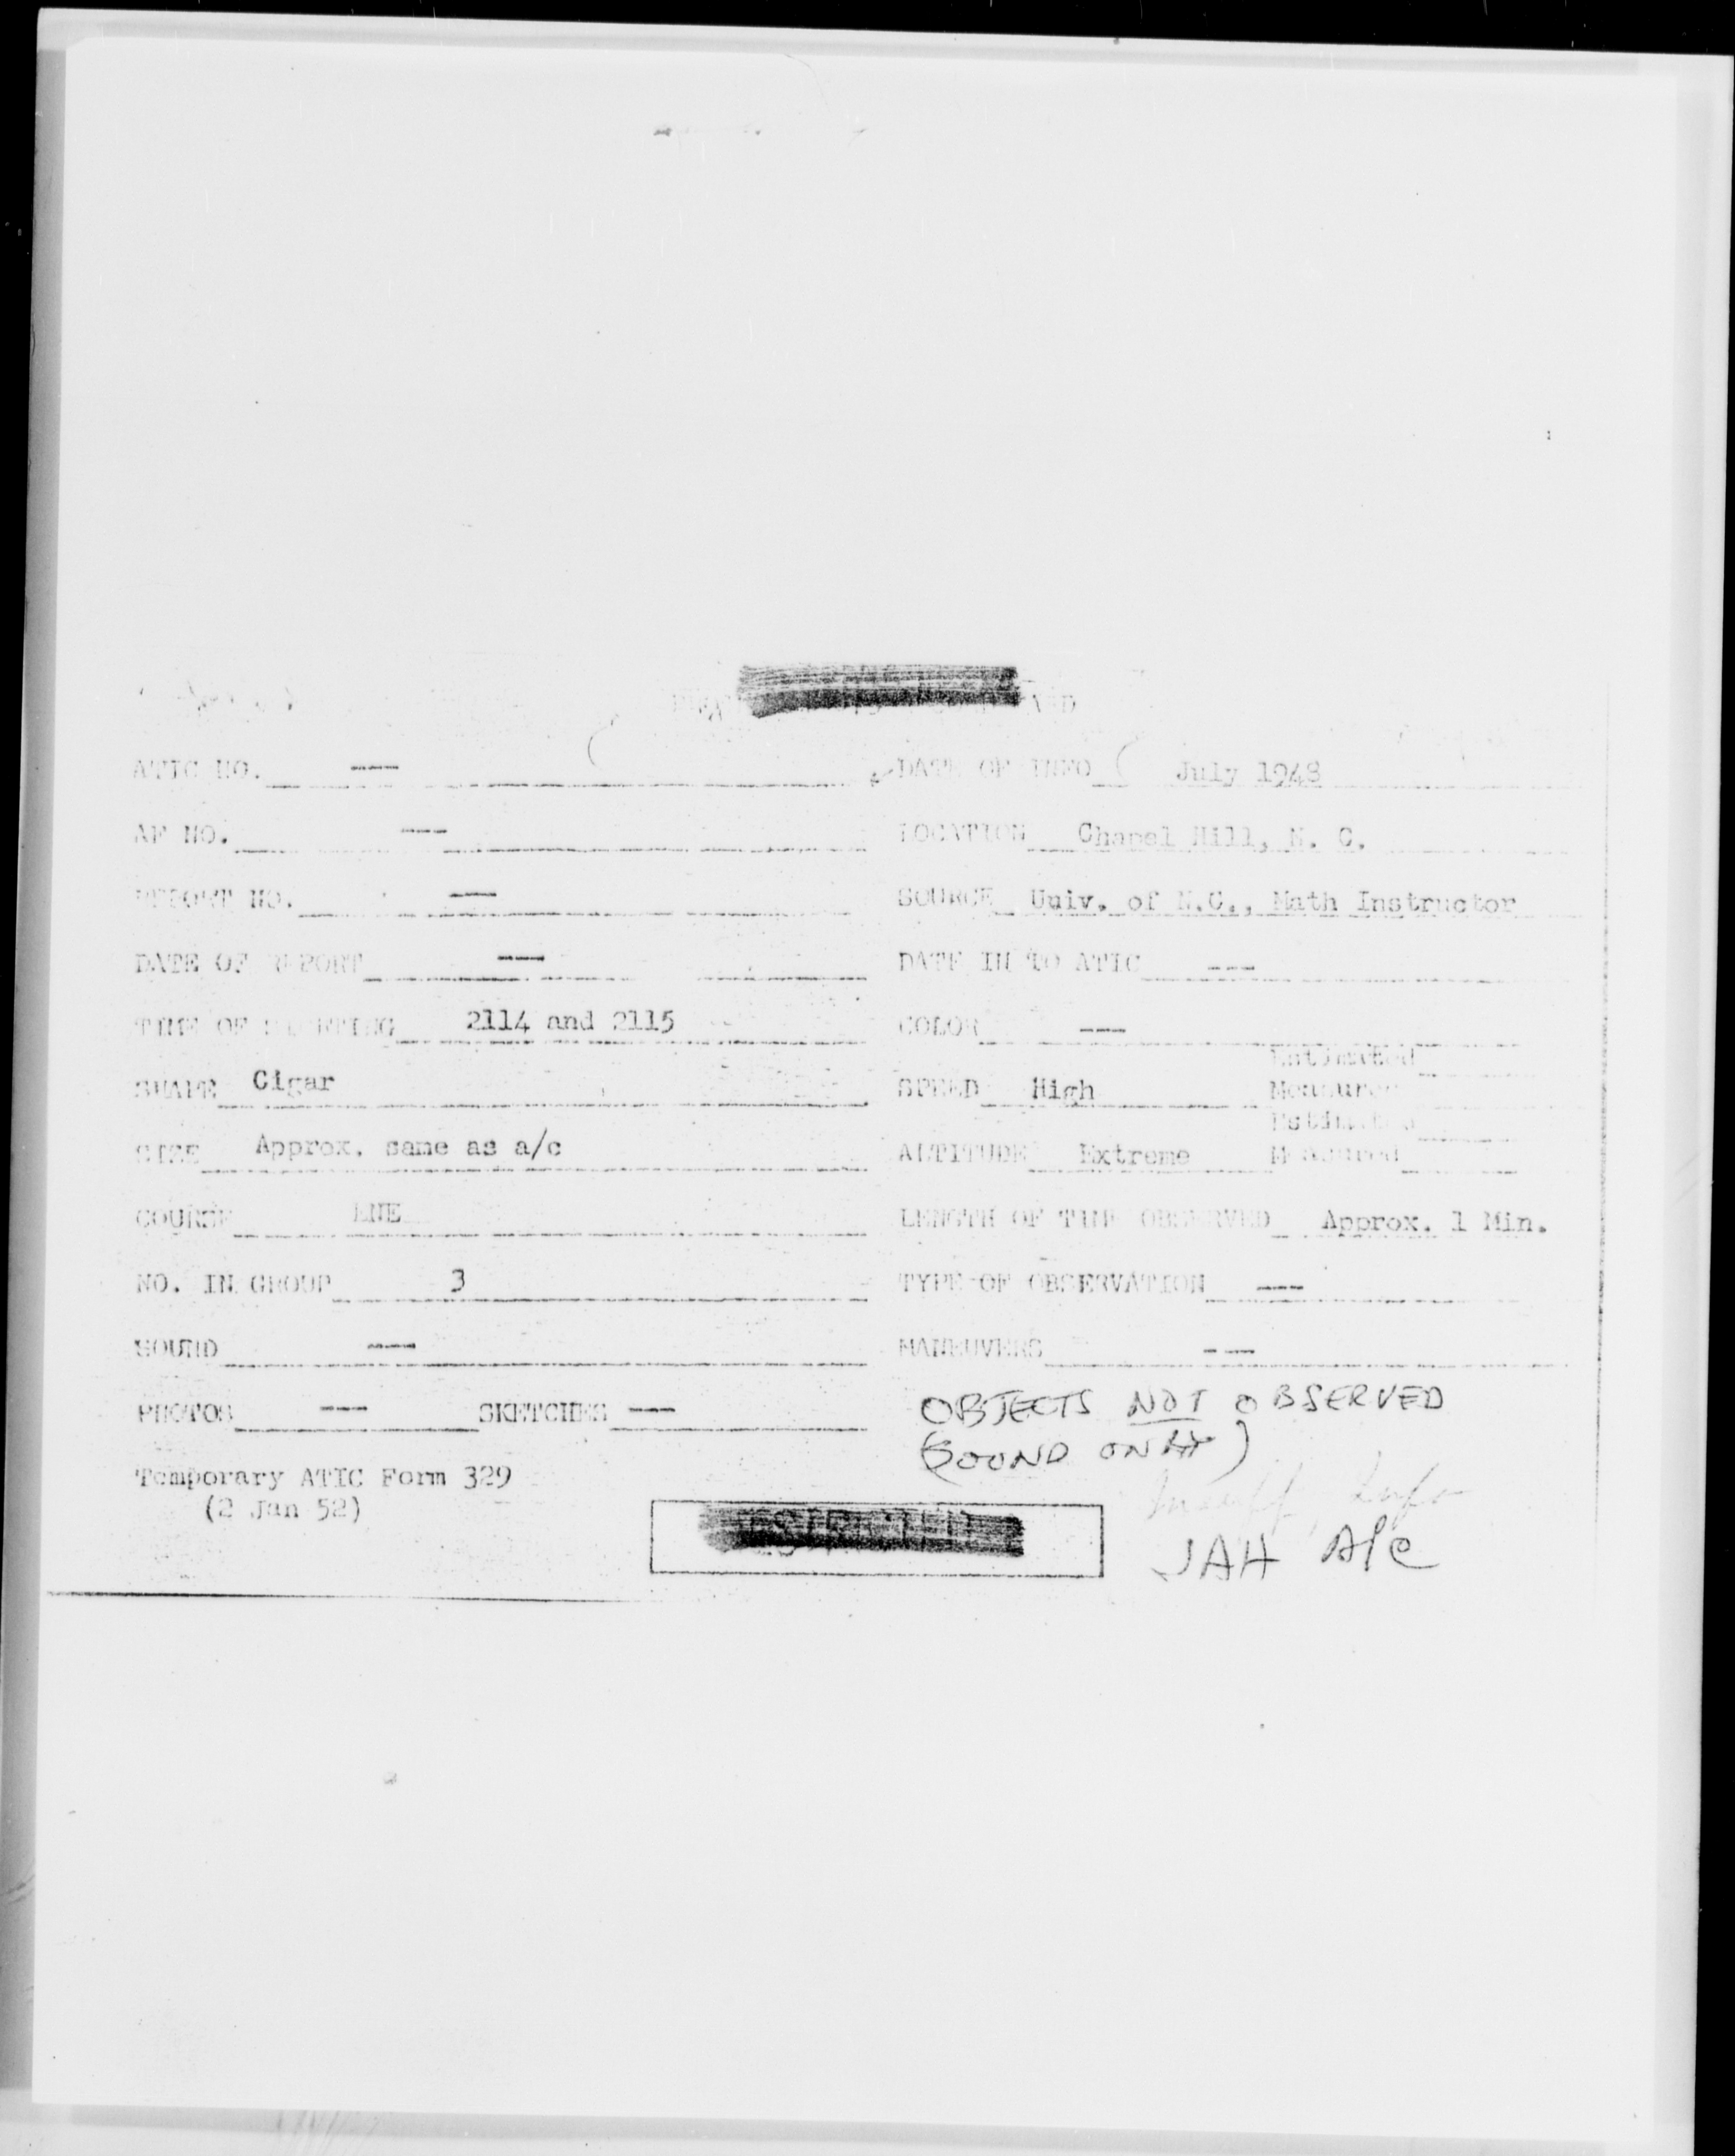 ATIC NO. --- DATE OF INFO July 1948
AF NO. --- LOCATION Chapel Hill, N. C.
REPORT NO. --- SOURCE Univ. of N.C., Math Instructor
DATE OF REPORT --- DATE IN TO ATIC ---
TIME OF SIGHTING 2114 and 2115 COLOR ---
Estimated
SHAPE Cigar SPEED High Measured
Estimated
SIZE Approx. same as a/c ALTITUDE Extreme Measured
COURSE ENE LENGTH OF TIME OBSERVED Approx. 1 Min.
NO. IN GROUP 3 TYPE OF OBSERVATION ---
SOUND --- MANEUVERS ---
PHOTOS --- SKETCHES --- OBJECTS NOT OBSERVED
(SOUND ONLY)
Temporary ATIC Form 329
(2 Jan 52)
Insuff. Info
JAH A/C